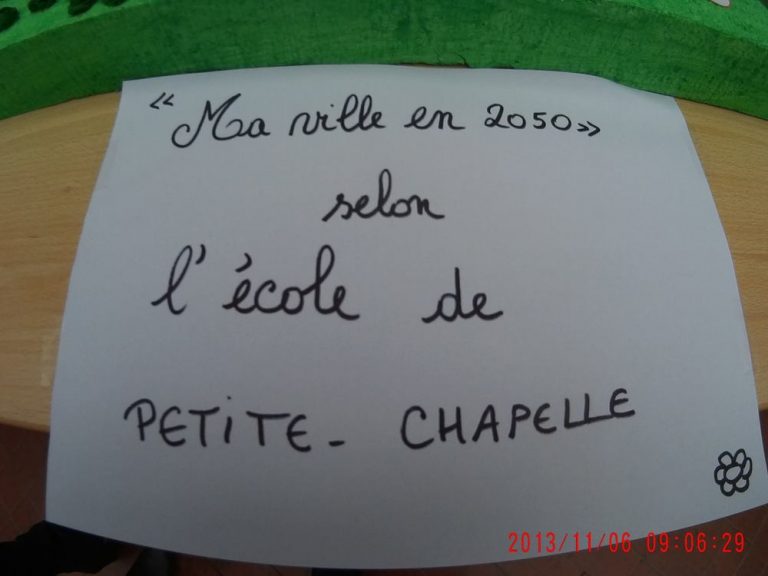 “Ma ville en 2050»
selon
l'école de
PETITE- CHAPELLE
2013/11/06 09:06:29